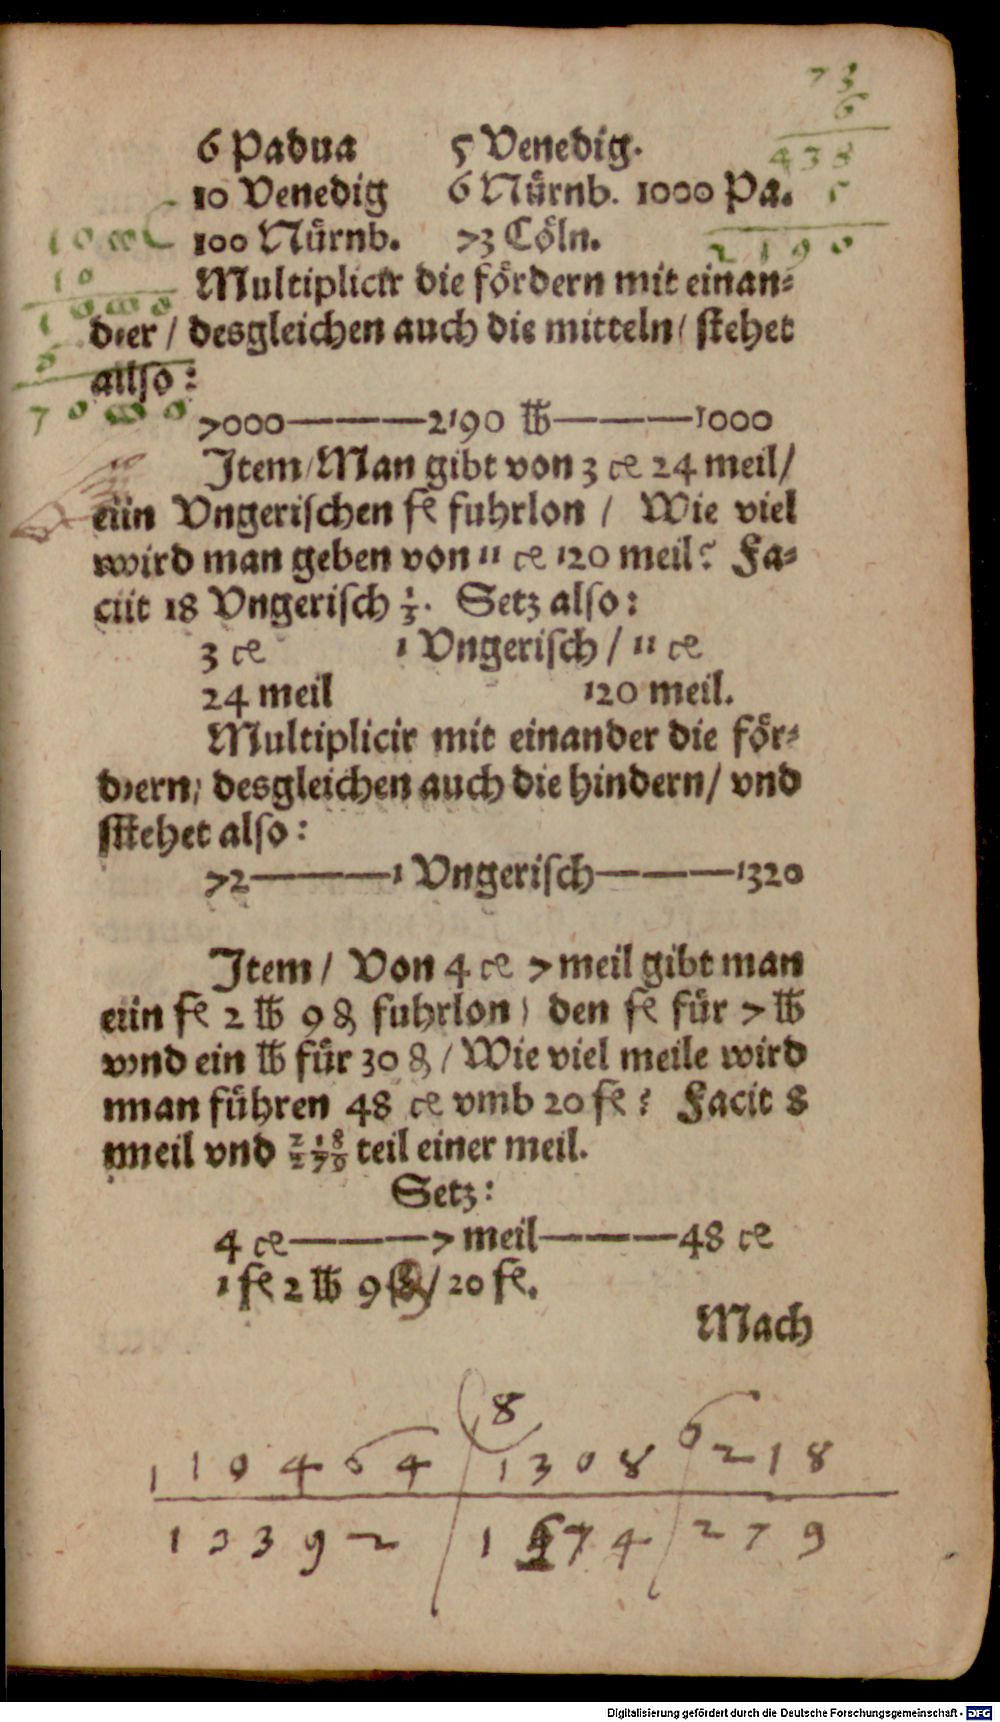 73
6
438
5
2190
6 Padua 5 Venedig.
10 Venedig 6 Nůrnb. 1000 Pa.
100 Nůrnb. 73 Cöln.
1000
10
10000
7
70000
Multiplicir die fördern mit einan-
der / desgleichen auch die mitteln / stehet
allso:
7000———2190 ℔———1000
Item / Man gibt von 3 ce 24 meil /
ein Vngerischen fe fuhrlon / Wie viel
wird man geben von 11 ce 120 meil? Fa-
cit 18 Vngerisch 1/3. Setz also:
3 ce 1 Vngerisch / 11 ce
24 meil 120 meil.
Multiplicir mit einander die för-
dern / desgleichen auch die hindern / vnd
stehet also:
72———1 Vngerisch———1320
Item / Von 4 ce 7 meil gibt man
ein fe 2 ℔ 9 ₰ fuhrlon / den fe für 7 ℔
vnd ein ℔ für 30 ₰ / Wie viel meile wird
man führen 48 ce vmb 20 fe? Facit 8
meil vnd 218/279 teil einer meil.
Setz:
4 ce———7 meil———48 ce
1 fe 2 ℔ 9 ₰ / 20 fe.
Mach
8
110464 1308 6 218
13392 1674 279
Digitalisierung gefördert durch die Deutsche Forschungsgemeinschaft - DFG